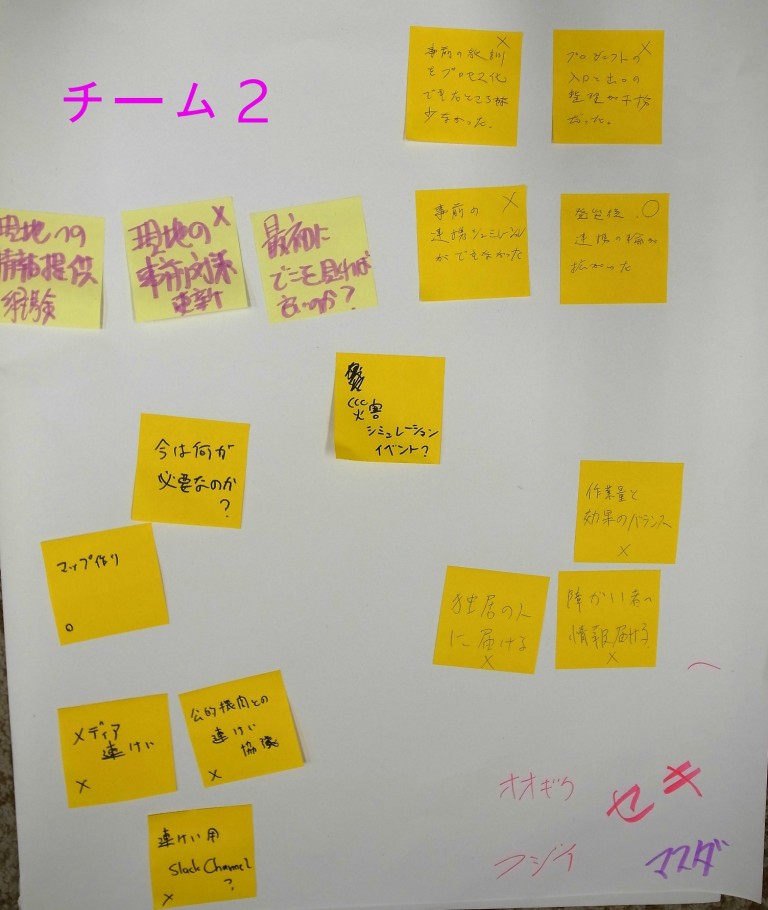 チーム2
×
事前の教訓
をプロセス化
できたところは
少なかった.
×
プロダクトの
入口と出口の
整理が不十分
だった.
現地への
情報提供
経験
現地の ×
更新
最初に
どこを見れば
良いのか?
×
事前の
連携シミュレーション
ができなかった
発災後、○
連携の輪が
拡がった
災害
シミュレーション
イベント?
今は何が
必要なのか
?
マップ作り
○
作業量と
効果のバランス
×
独居の人
に届ける
×
障がい者へ
情報届ける
×
メディア
連けい
×
公的機関との
連けい
×
連けい用
Slack Channel
?
×
オオギク
セキ
フジイ
マスダ